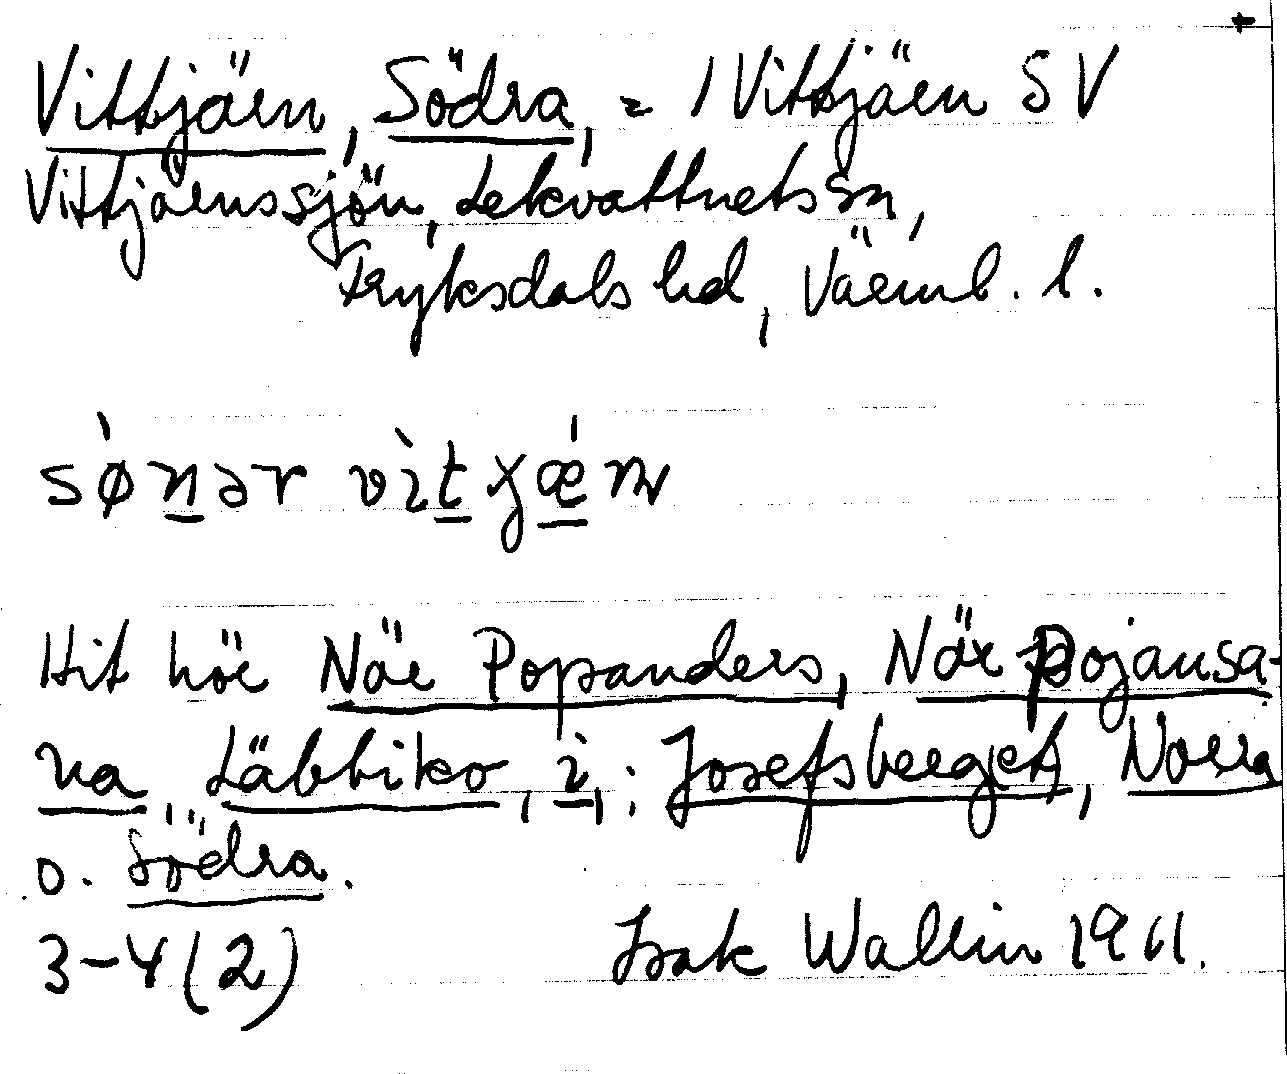 Vittjärn, Södra, = / Vittjärn SV
Vittjärnssjön, Lekvattnets sn,
Fryksdals hd, Värml. l.
sǿnar vìtjæ̀n
Hit hör När Popanders, När Pojansa-
na, Läbbiko, i, ; Josefsberget, Norra
o. Södra.
3-4 (2) Isak Wallin 1961.